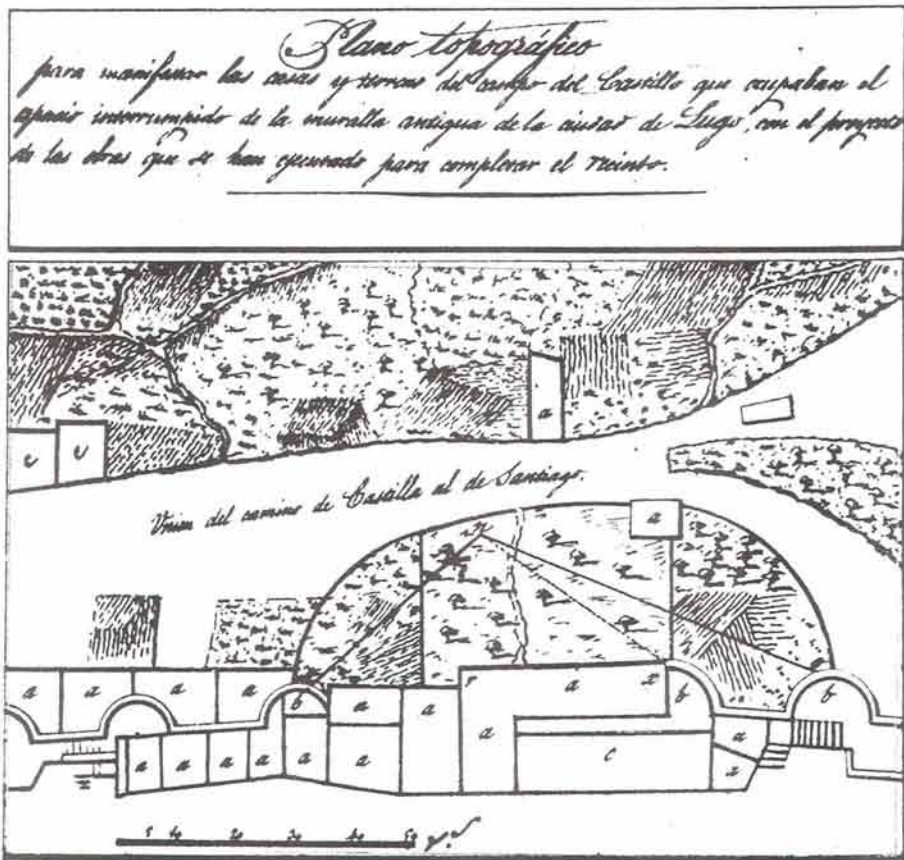 Plano topográfico
para manifestar las casas y terreno del campo del Castillo que ocupaban el
espacio interrumpido de la muralla antigua de la ciudad de Lugo, con el proyecto
de las obras que se han ejecutado para completar el recinto.
a
c c
Union del camino de Castilla al de Santiago.
a
a a a a b a a a a x b b
a a a a a a a c a a
5 10 20 30 40 50